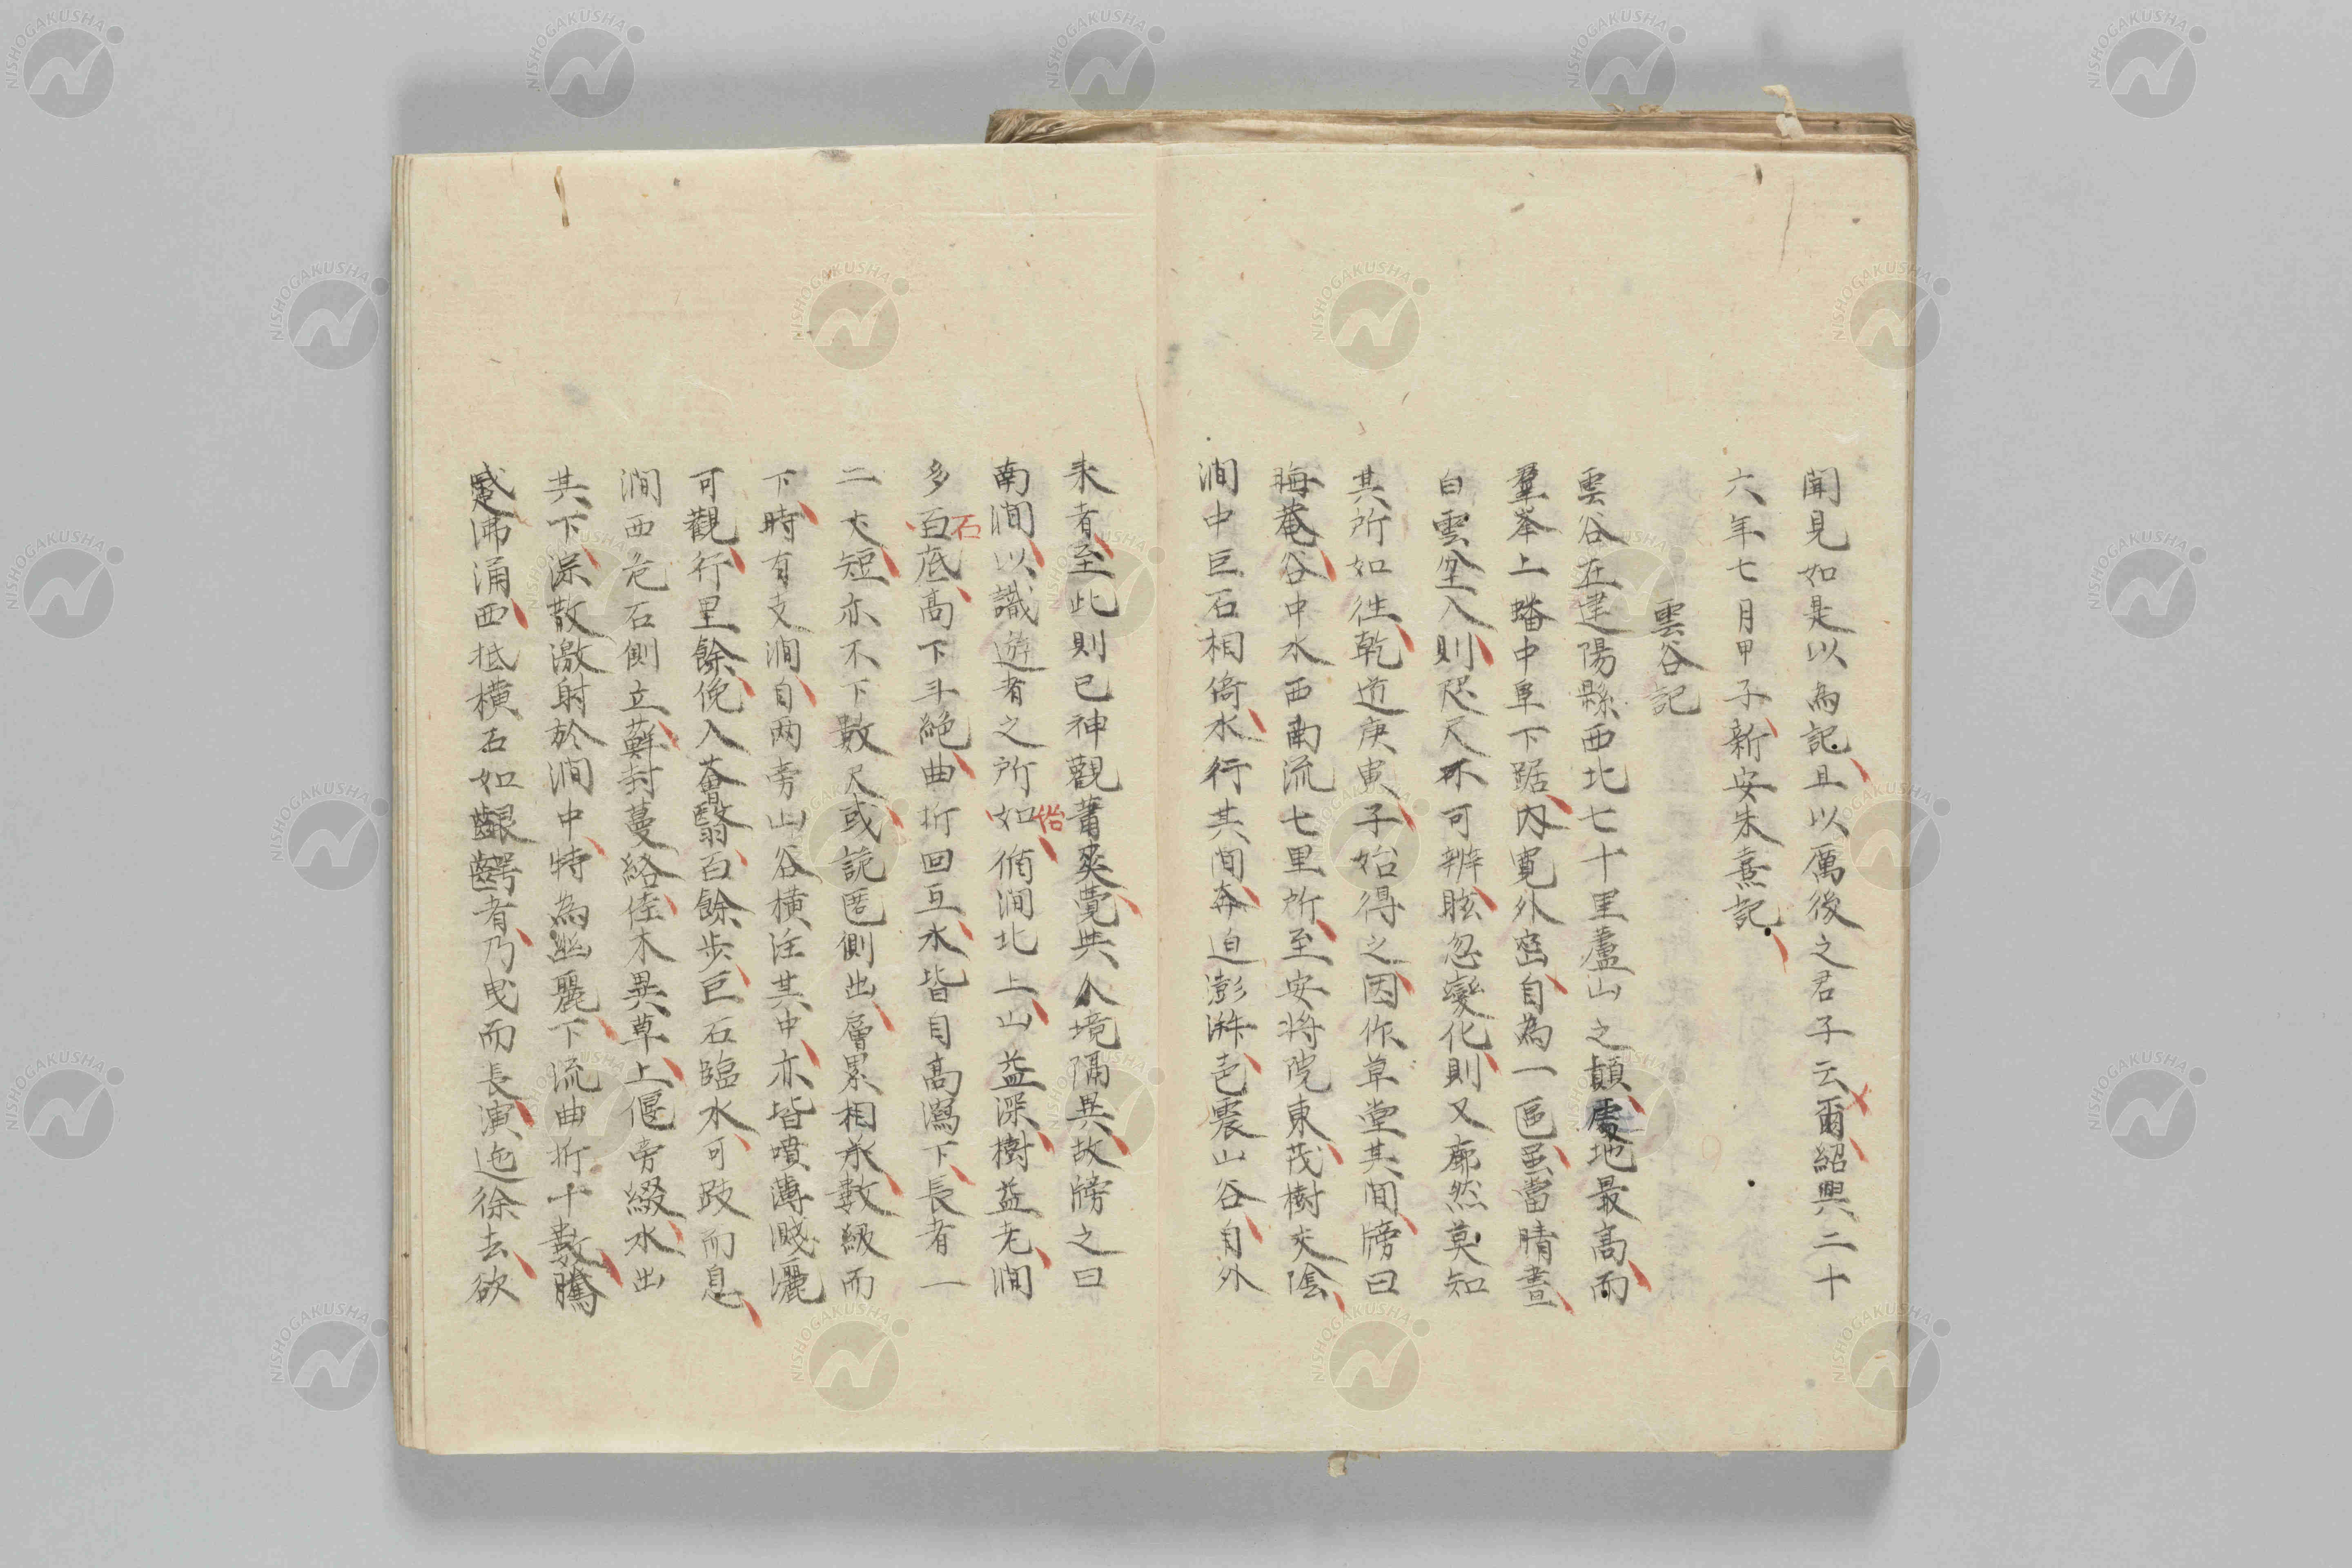 聞見如是以為記且以厲後之君子云爾紹興二十
六年七月甲子新安朱熹記
雲谷記
雲谷在建陽縣西北七十里蘆山之顛處地最高而
羣峯上蟠中阜下踞内寛外密自為一區虽當晴晝
白雲坌入則咫尺不可辨眩忽變化則又廓然莫知
其所如往乾道庚寅子始得之因作草堂其間牓曰
晦菴谷中水西南流七里所至安将院東茂樹交陰
澗中巨石相倚水行其間奔迫澎湃色震山谷自外
来者至此則已神觀蕭爽覺與人境隔異故牓之曰
南澗以識遊者之所如循澗北上山益深樹益老澗
始
多百底高下斗絶曲折回互水皆自高瀉下長者一
石
二丈短亦不下數尺或詭匿側出層累相承數級而
下時有支澗自两旁山谷横注其中亦皆噴薄濺灑
可觀行里餘俛入薈翳百餘歩巨石臨水可跂而息
澗西危石側立蘚封蔓絡佳木異草上偃旁綴水出
其下淙散激射於澗中特為幽麗下流曲折十數騰
蹙沸涌西抵横石如齦齶者乃曳而長演迤徐去欲
NISHOGAKUSHA